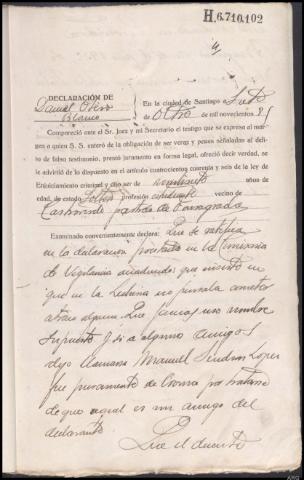 H.6.710.102
DECLARACIÓN DE
Daniel Otero
Blanco
En la ciudad de Santiago
de Octre de mil novecientos
Compareció ante el Sr. Juez y mi Secretario el testigo que se expresa al margen
a quien S. S. enteró de la obligación de ser veraz y penas señaladas al delito
de falso testimonio, prestó juramento en forma legal, ofreció decir verdad, se
le advirtió de lo dispuesto en el artículo cuatrocientos cuarenta y seis de la ley de
Enjuiciamiento criminal y dijo ser de veintisiete años de
edad, de estado soltero profesión estudiante vecino de
Examinado convenientemente declara: Que se ratifica
en la declaración prestada en la Comisaria
de Vigilancia añadiendo que insiste en
que en la no pensaba cometer
alguno. Que jamas uso nombre
supuesto y si a algunos amigos
dijo llamarse Manuel López
fue puramente de broma por tratarse
de que aquel es un amigo del
declarante.
Que el